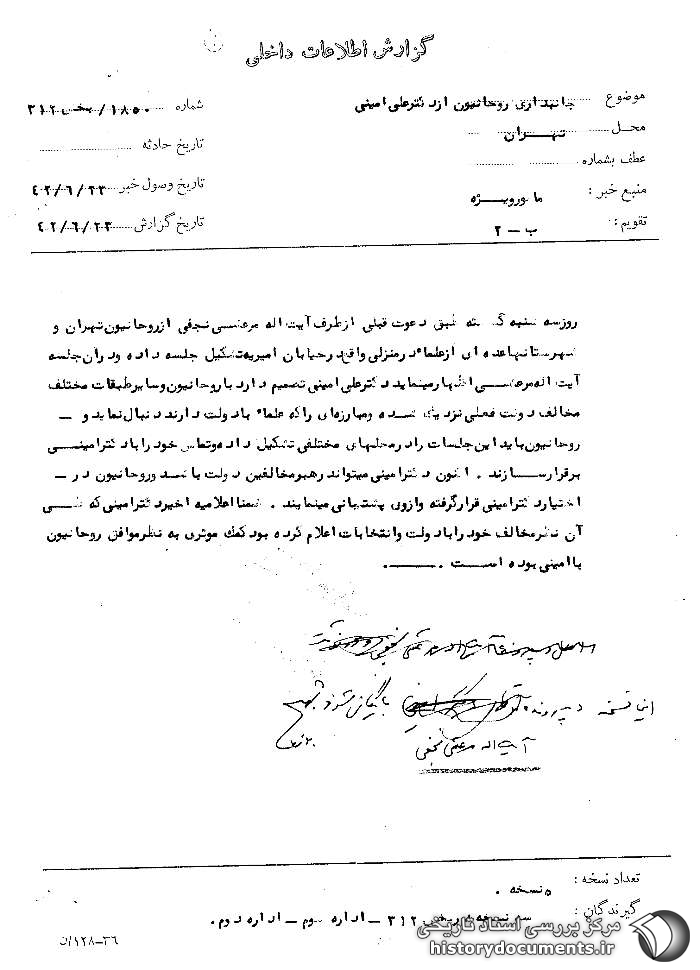 گزارش اطلاعات داخلی
موضوع جانبداری روحانیون از دکتر علی امینی
شماره ۱۸۵۰/ بخش ۳۱۲
محل تهران
تاریخ حادثه
عطف بشماره
تاریخ وصول خبر ۴۲/۶/۲۳
منبع خبر : مامور ویژه
تاریخ گزارش ۴۲/۶/۲۳
تقویم : ب – ۲
روز سه شنبه گذشته طبق دعوت قبلی از طرف آیت اله مرعشی نجفی از روحانیون تهران و
شهرستانها عده ای از علماء در منزلی واقع در خیابان امیریه تشکیل جلسه داده و در آن جلسه
آیت اله مرعشی اظهار مینماید دکتر علی امینی تصمیم دارد با روحانیون و سایر طبقات مختلف
مخالف دولت فعلی نزدیک شده و مبارزه‌ای را که علماء با دولت دارند دنبال نماید و –
روحانیون باید این جلسات را در محلهای مختلفی تشکیل داده و تماس خود را با دکتر امینی
برقرار سازند . اکنون دکتر امینی میتواند رهبر مخالفین دولت باشد و روحانیون در –
اختیار دکتر امینی قرار گرفته و از وی پشتیبانی مینمایند . ضمنا اعلامیه اخیر دکتر امینی که طی
آن نظر مخالف خود را با دولت و انتخابات اعلام کرده بود کمک موثری به نظر موافق روحانیون
با امینی بوده است .
این نسخه در پرونده بایگانی شود
آیت اله مرعشی نجفی
تعداد نسخه :
۵ نسخه .
گیرندگان : سه نسخه در بخش ۳۱۲ – اداره سوم – اداره دوم .
۳۶–۱۲۸/د
مرکز بررسی اسناد تاریخی
historydocuments.ir